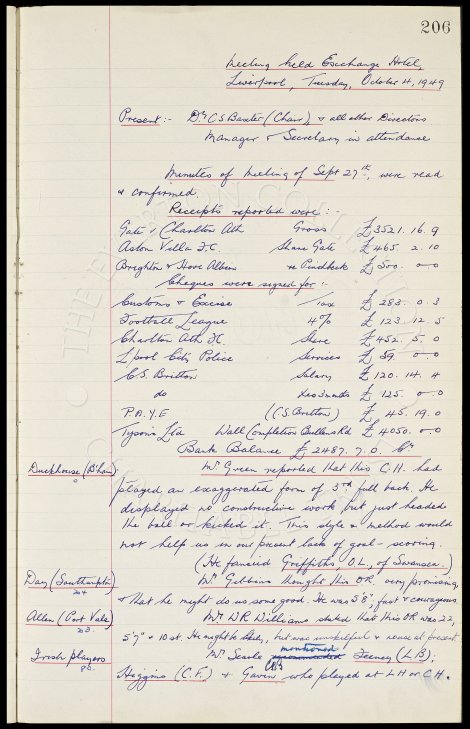 206
Meeting held Exchange Hotel,
Liverpool, Tuesday, October 4, 1949
Present:- Dr C S Baxter (Chair), & all other Directors
Manager & Secretary in attendance
Minutes of Meeting of Sept 27th, were read
& confirmed
Receipts reported were:-
Gate v Charlton Ath Gross £3521. 16. 9
Aston Villa F.C. Share Gate £465. 2. 10
Brighton & Hove Albion re Pinchbeck £500. 0 0
Cheques were signed for:-
Customs & Excise Tax £283. 0. 3
Football League 4% £123. 12. 5
Charlton Ath F.C. Share £452. 5. 0
L'pool City Police Services £59. 0 0
C.S. Britton Salary £120. 14. 4
do £125. 0 0
P.A.Y.E (C S Britton) £45. 19. 0
Tysons Ltd Wall Completion Bullens Rd £4050. 0 0
Bank Balance £2487. 7. 0. Cr
Duckhouse (B'ham) Mr Green reported that this C.H. had
played an exaggerated form of 3rd full back. He
displayed no constructive work but just headed
the ball or kicked it. This style or method would
not help us in our present lack of goal-scoring.
(He fancied Griffiths, O.L., of Swansea.)
Day (Southampton) Mr Gibbins thought this OR, very promising,
24
& that he might do us some good. He was 5'8", fast & courageous
Allen (Port Vale) Mr W R Williams stated that this OR was 22,
23
5'7" & 10 st. He might be likely, but was unskilful & neat at present
Irish Players Mr Searle mentioned Feeney (LB);
Higgins (C.F.) & Gavin who played at LH or C.H.